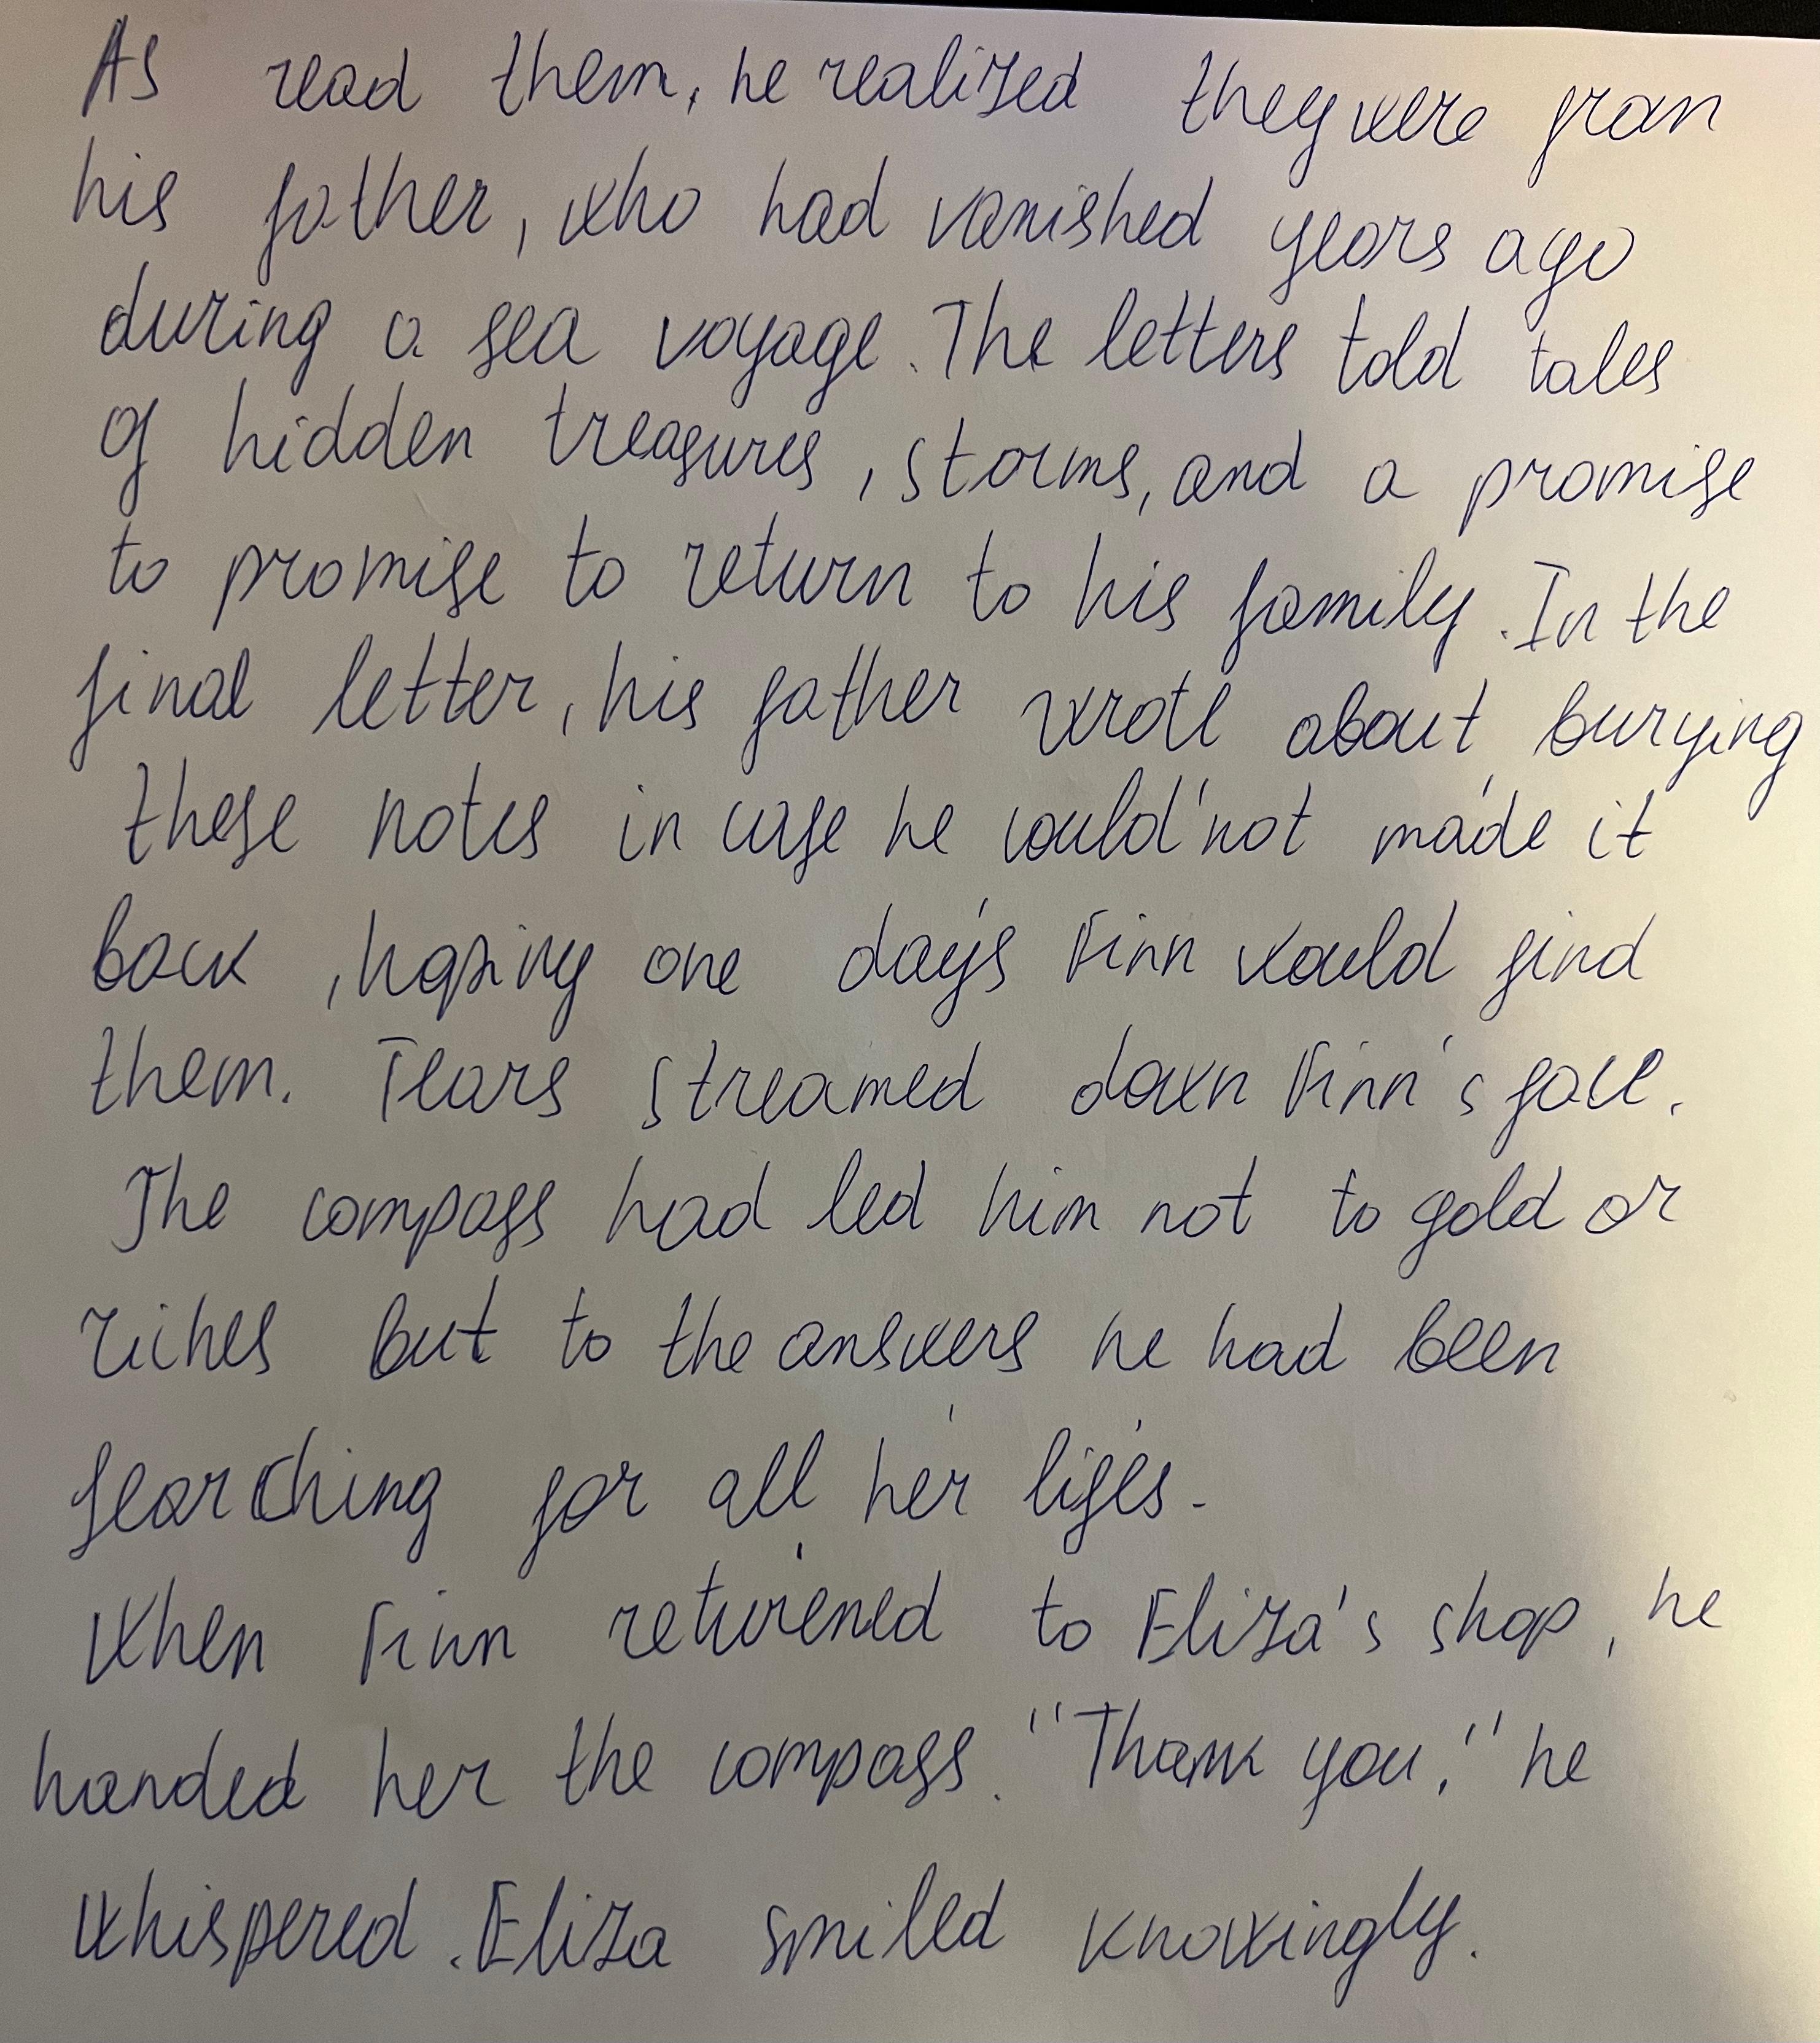 As read them, he realized they were from
his father, who had vanished years ago
during a sea voyage. The letters told tales
of hidden treasures, storms, and a promise
to promise to return to his family. In the
final letter, his father wrote about burying
these notes in case he could'not made it
back, hoping one day's Finn would find
them. Tears streamed down Finn's face.
The compass had led him not to gold or
riches but to the answers he had been
searching for all her life's.
When Finn returened to Eliza's shop, he
handed her the compass. "Thank you," he
whispered. Eliza smiled knowingly.